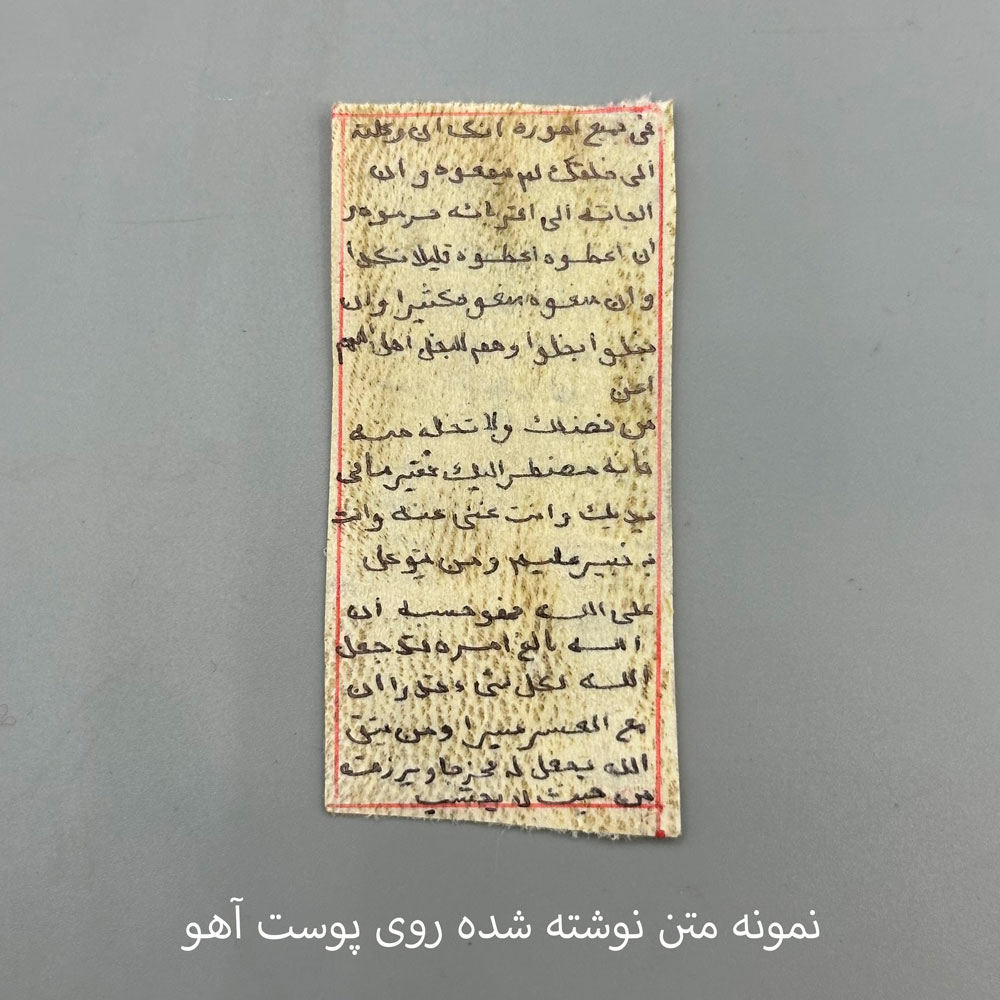 في جميع اموره انك ان وكلته
الى خلقك لم ينفعوه وان
الجاته الى اقربائه حرموه و
ان اعطوه اعطوه قليلا نكدا
وان منعوه منعوه كثيرا وان
بخلوا بخلوا وهم للبخل اهل اللهم
اغن
من فضلك ولا تخله منه
فانه مضطر اليك فقير ما في
يديك وانت غني عنه وانت
به خبير عليم ومن يتوكل
على الله فهو حسبه ان
الله بالغ امره قد جعل
الله لكل شيء قدرا ان
مع العسر يسرا ومن يتق
الله يجعل له مخرجا ويرزقه
من حيث لا يحتسب
نمونه متن نوشته شده روی پوست آهو